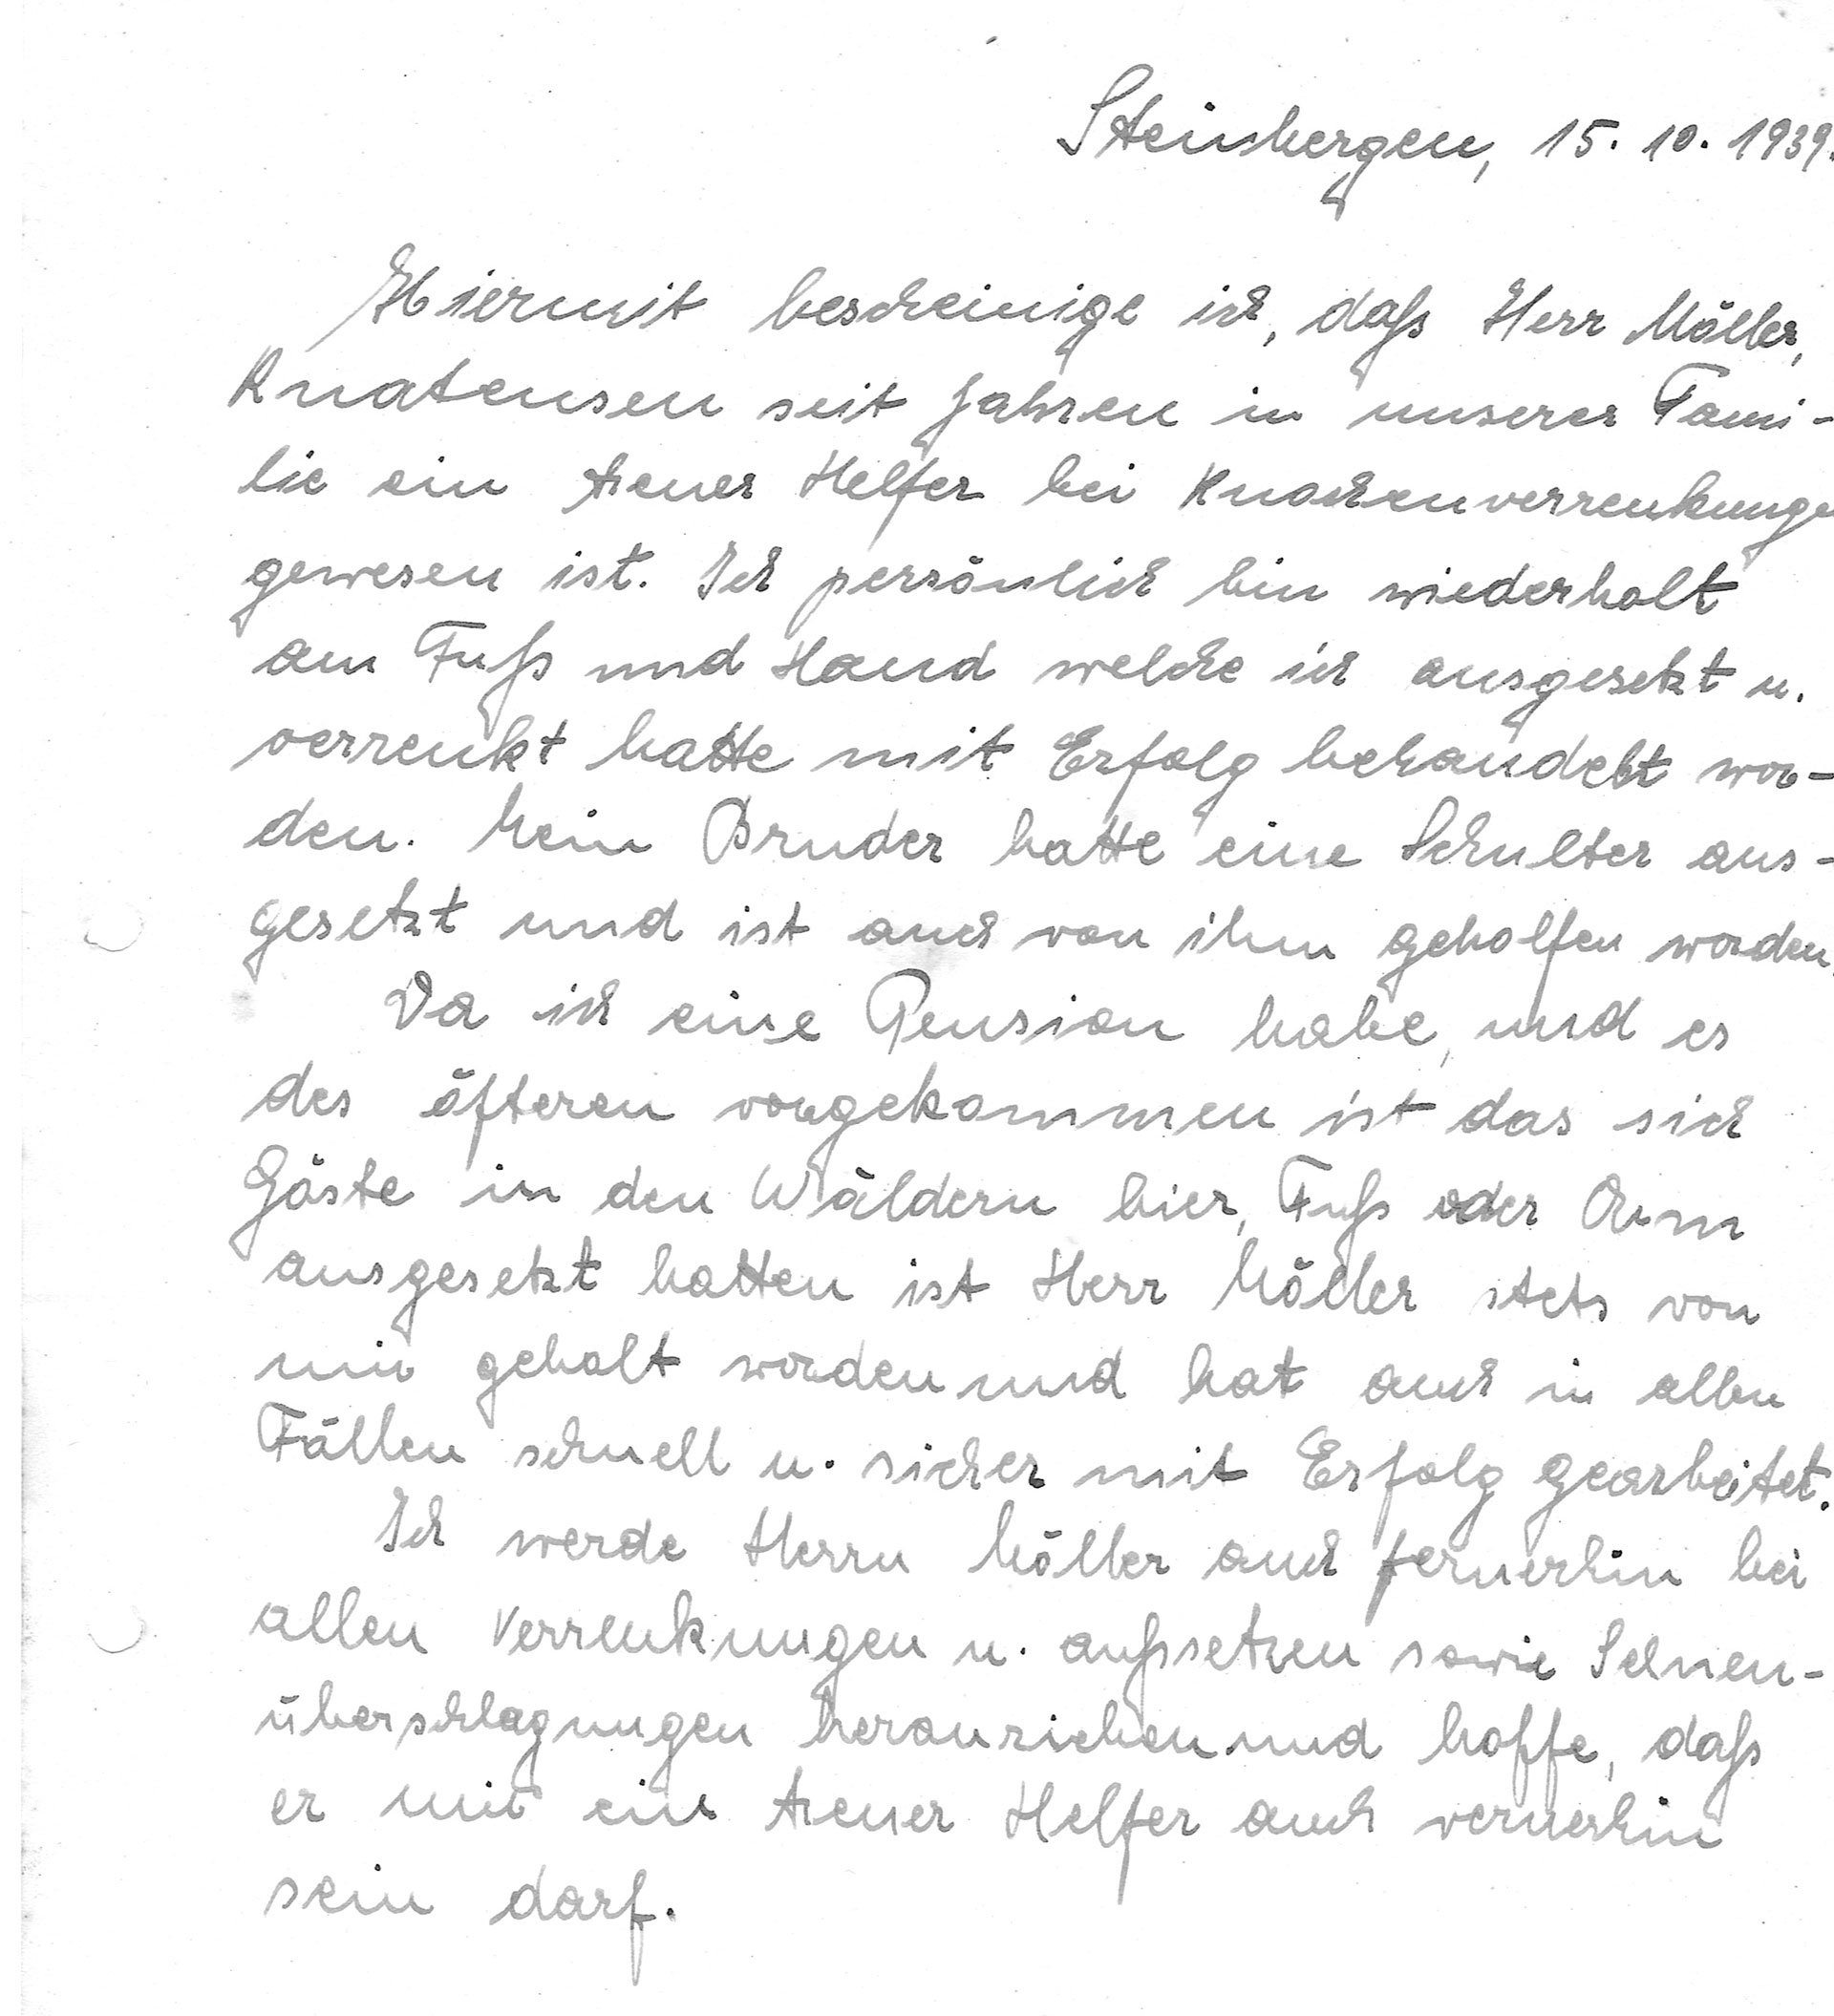 Steinbergen, 15.10.1939.
Hiermit bescheinige ich, daß Herr Möller,
Knatensen seit Jahren in unserer Fami-
lie ein treuer Helfer bei Knochenverrenkungen
gewesen ist. Ich persönlich bin wiederholt
am Fuß und Hand welche ich ausgesetzt u.
verrenkt hatte mit Erfolg behandelt wor-
den. Mein Bruder hatte eine Schulter aus-
gesetzt und ist auch von ihm geholfen worden.
Da ich eine Pension habe, und es
des öfteren vorgekommen ist das sich
Gäste in den Wäldern hier, Fuß oder Arm
ausgesetzt hatten ist Herr Möller stets von
mir geholt worden und hat auch in allen
Fällen schnell u. sicher mit Erfolg gearbeitet.
Ich werde Herrn Möller auch fernerhin bei
allen Verrenkungen u. außsetzen sowie Sehnen-
überschlagungen heranziehen und hoffe, daß
er mir ein treuer Helfer auch vernerhin
sein darf.